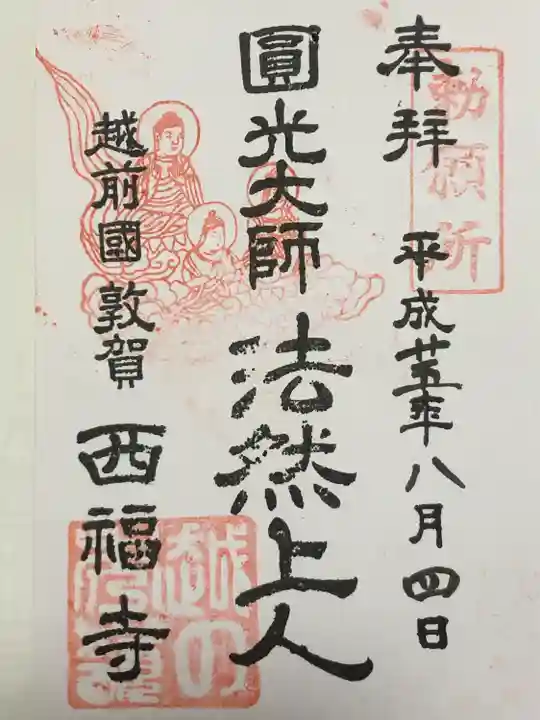 勅願所
奉拝 平成廿五年八月四日
圓光大師 法然上人
越前國敦賀 西福寺
越の